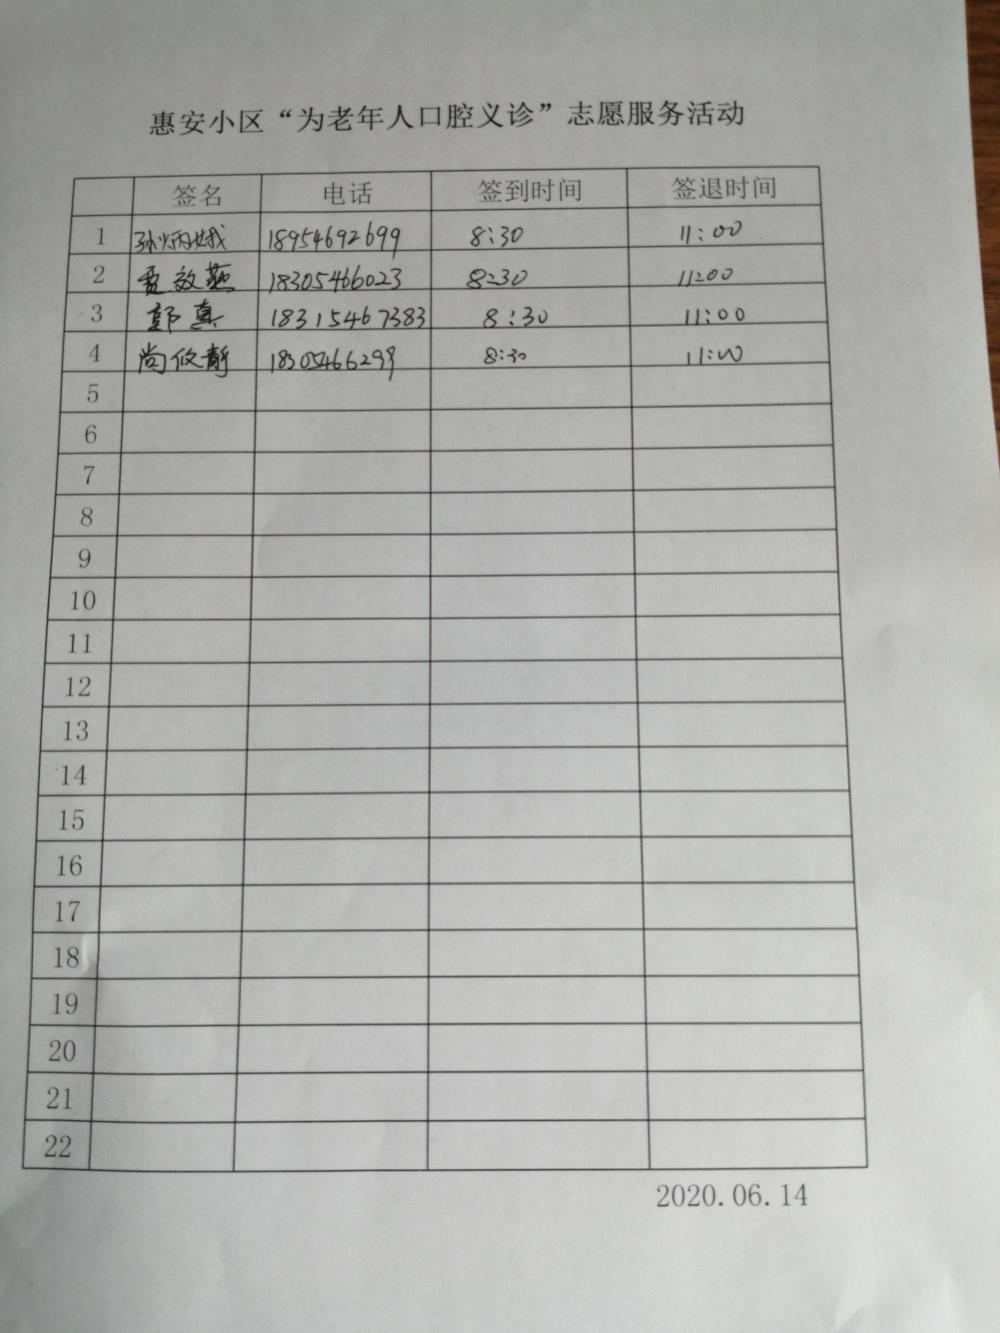 惠安小区“为老年人口腔义诊”志愿服务活动
签名 电话 签到时间 签退时间
1 孙炳娥 18954692699 8:30 11:00
2 贾效燕 18305466023 8:30 11:00
3 郭真 18315467383 8:30 11:00
4 尚攸静 18305466299 8:30 11:00
5
6
7
8
9
10
11
12
13
14
15
16
17
18
19
20
21
22
2020.06.14